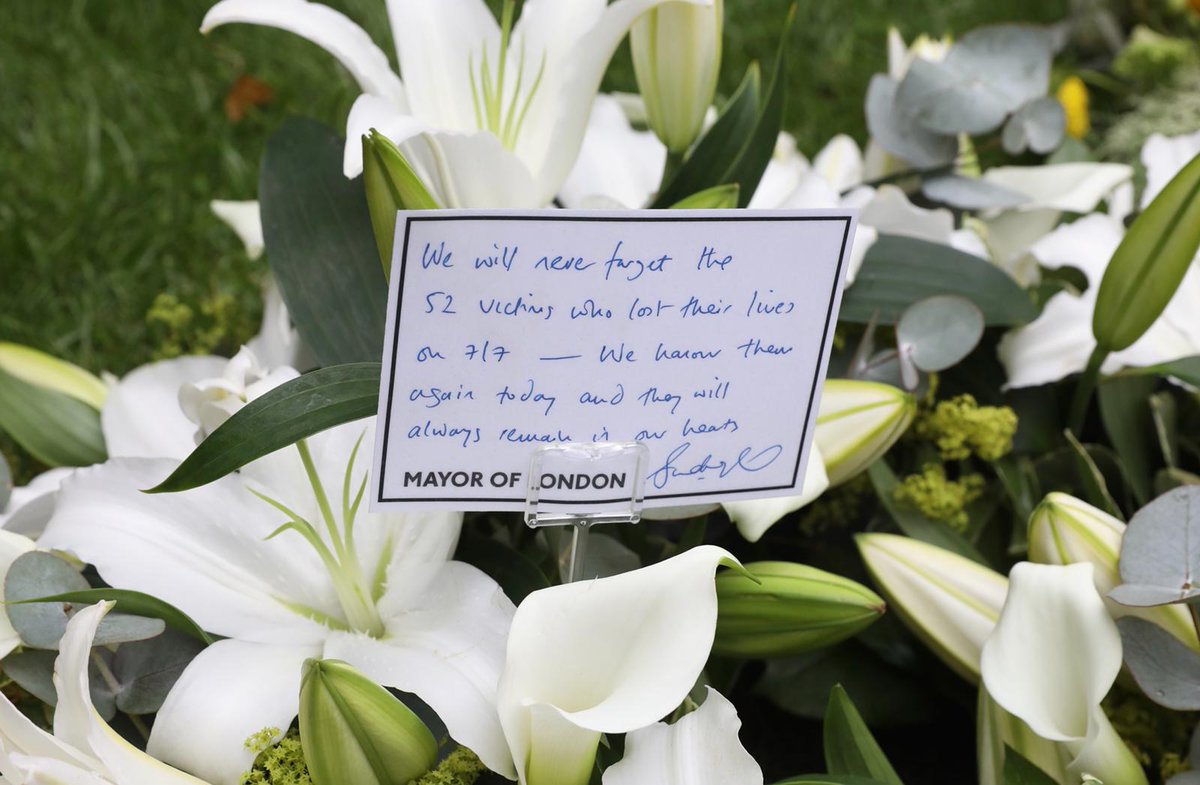 We will never forget the
52 victims who lost their lives
on 7/7 — We honour them
again today and they will
always remain in our hearts
MAYOR OF LONDON